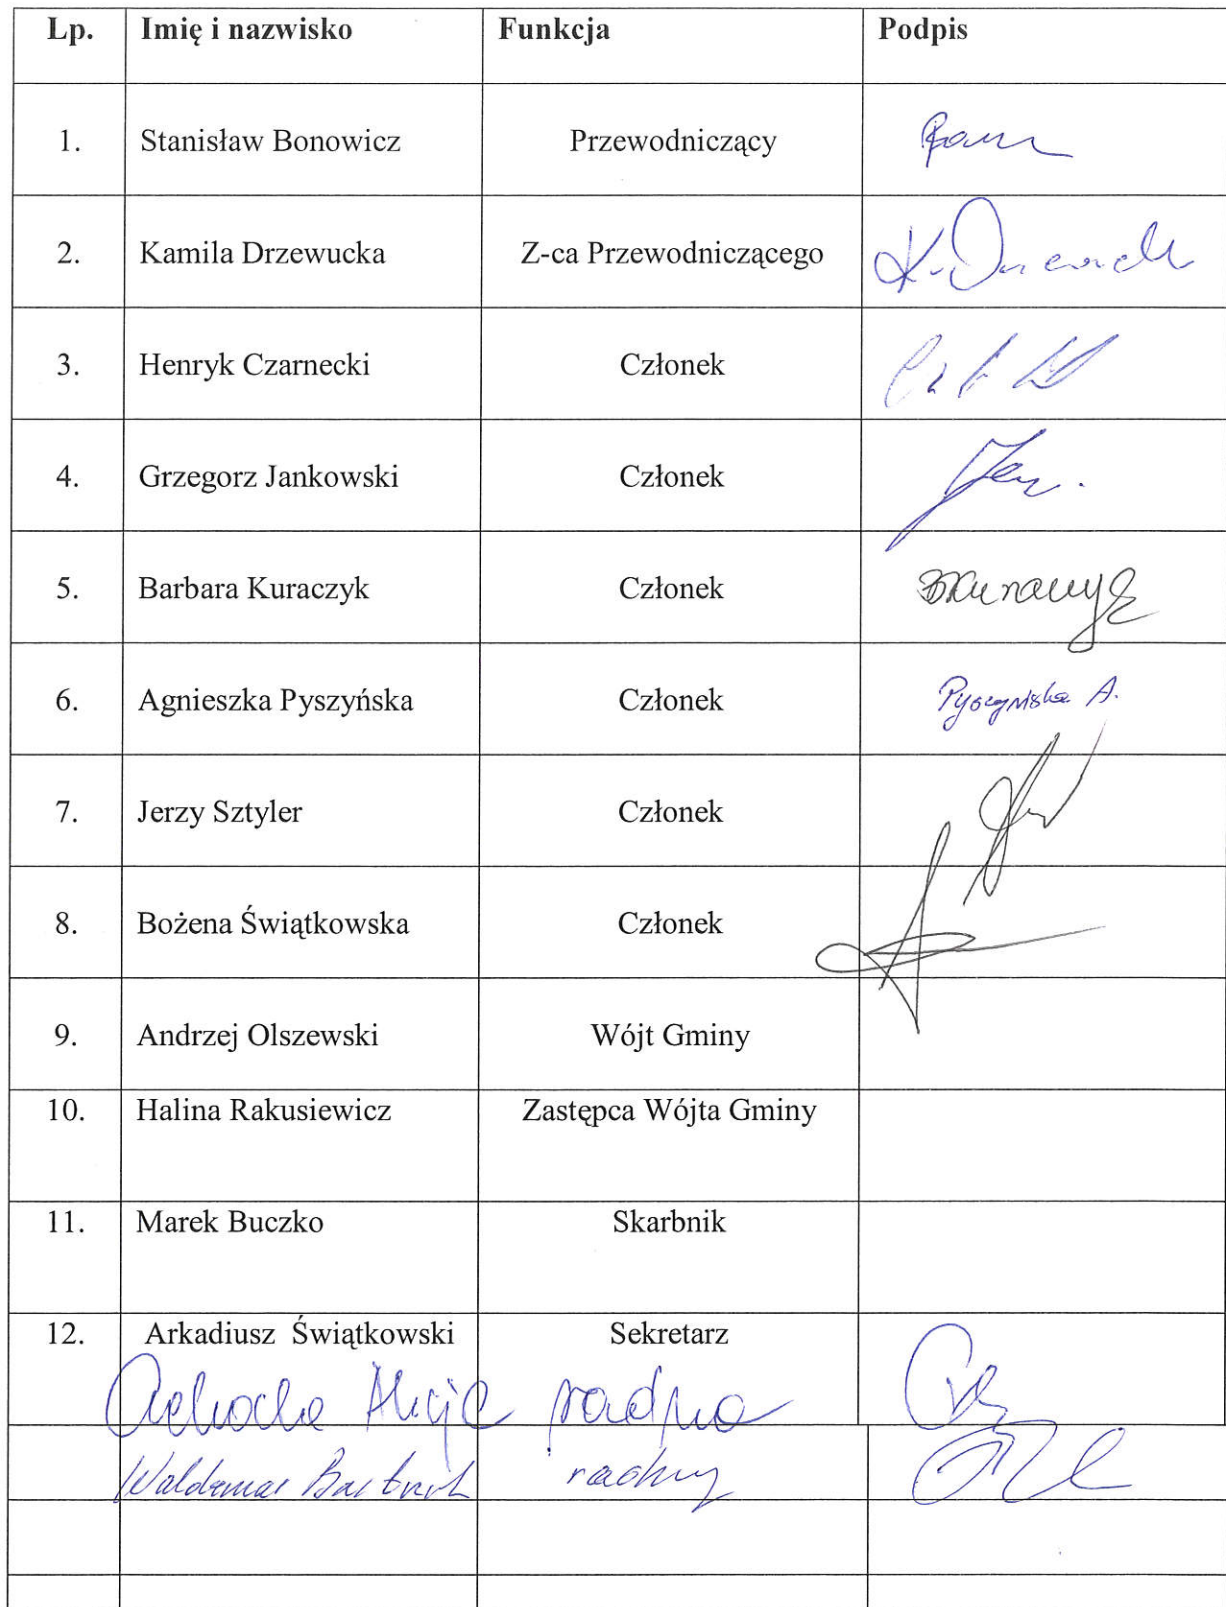 Lp. Imię i nazwisko Funkcja Podpis
1. Stanisław Bonowicz Przewodniczący
2. Kamila Drzewucka Z-ca Przewodniczącego
3. Henryk Czarnecki Członek
4. Grzegorz Jankowski Członek
5. Barbara Kuraczyk Członek
6. Agnieszka Pyszyńska Członek Pyszyńska A.
7. Jerzy Sztyler Członek
8. Bożena Świątkowska Członek
9. Andrzej Olszewski Wójt Gminy
10. Halina Rakusiewicz Zastępca Wójta Gminy
11. Marek Buczko Skarbnik
12. Arkadiusz Świątkowski Sekretarz
Alicja radna
Waldemar radny